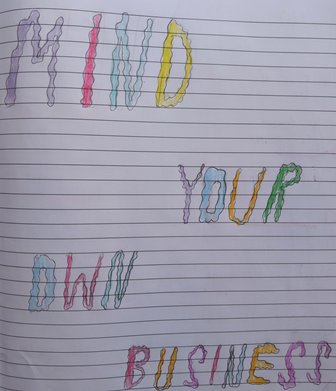 MIND
YOUR
OWN
BUSINESS